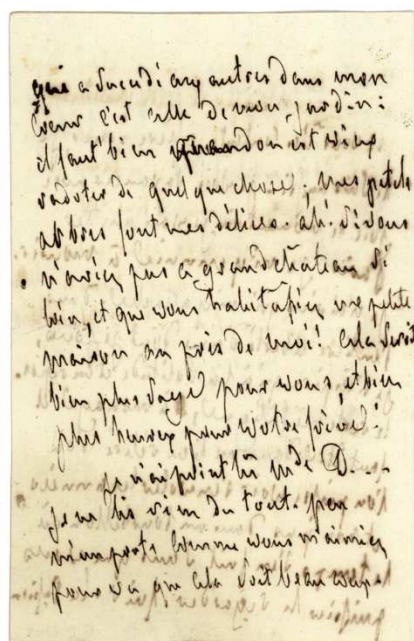 qui a succedé aux autres dans mon
coeur c'est celle de mon jardin:
il faut bien quand on est vieux
radoter de quelque chose; mes petits
arbres font mes délices. ah! si vous
n'aviez pas ce grand chateau si
loin, et que vous habitassiez une petite
maison au près de moi! cela seroit
bien plus sage pour vous, et bien
plus heureux pour votre frère!
je n'ai point lu Mde D...
je ne lis rien du tout. peu
m'importe comme vous m'aimiez
pourvu que cela soit beaucoup.